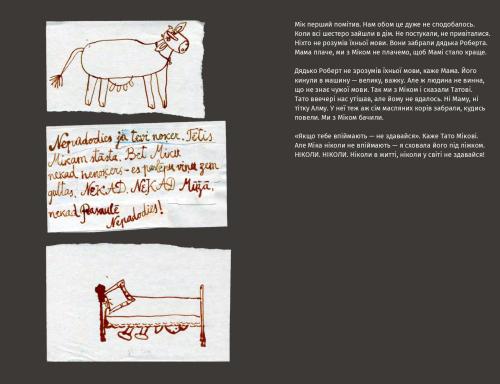 Nepadodies ja tevi noķer. Tētis
Mikam stāsta. Bet Miku
nekad nenoķers - es paslēpu viņu zem
gultas. NEKAD. NEKAD Mūžā,
nekad Pasaulē
Nepadodies!
Мік перший помітив. Нам обом це дуже не сподобалось.
Коли всі шестеро зайшли в дім. Не постукали, не привіталися.
Ніхто не розумів їхньої мови. Вони забрали дядька Роберта.
Мама плаче, ми з Міком не плачемо, щоб Мамі стало краще.
Дядько Роберт не зрозумів їхньої мови, каже Мама. Його
кинули в машину — велику, важку. Але ж людина не винна,
що не знає чужої мови. Так ми з Міком і сказали Татові.
Тато ввечері нас утішав, але йому не вдалось. Ні Маму, ні
тітку Алму. У неї теж аж сім масляних корів забрали, кудись
повели. Ми з Міком бачили.
«Якщо тебе впіймають — не здавайся». Каже Тато Мікові.
Але Міка ніколи не впіймають — я сховала його під ліжком.
НІКОЛИ. НІКОЛИ. Ніколи в житті, ніколи у світі не здавайся!